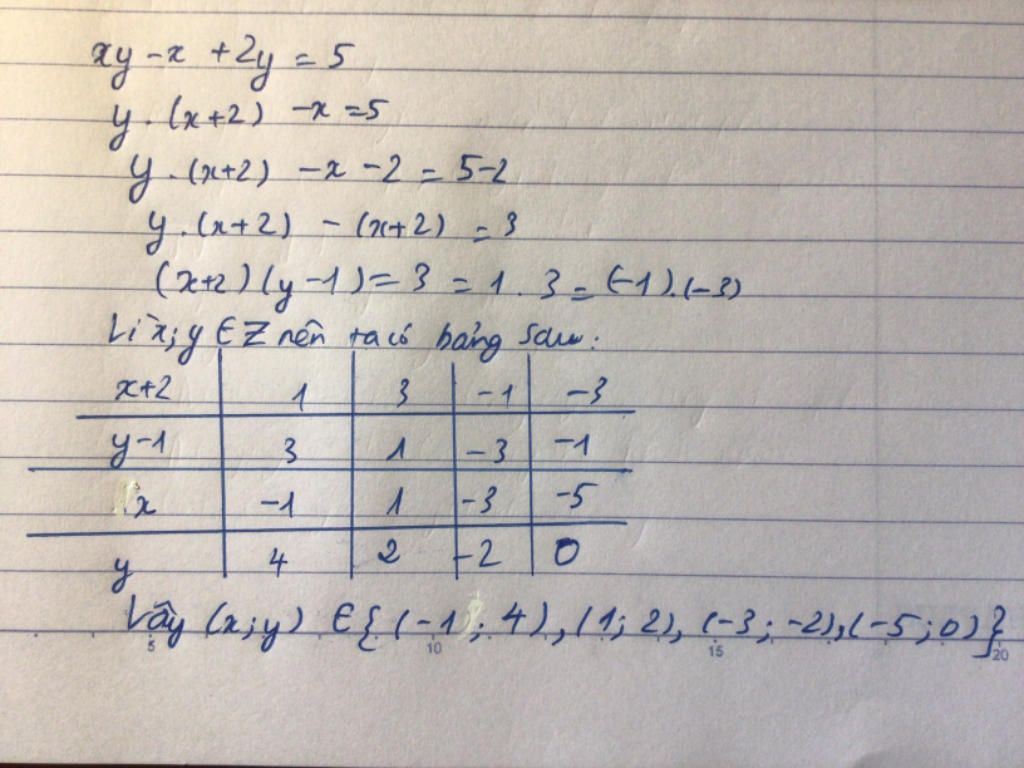 xy - x + 2y = 5
y . (x+2) - x = 5
y . (x+2) - x - 2 = 5-2
y . (x+2) - (x+2) = 3
(x+2) (y-1) = 3 = 1 . 3 = (-1) . (-3)
Vì x; y ∈ Z nên ta có bảng sau:
x+2 1 3 -1 -3
y-1 3 1 -3 -1
x -1 1 -3 -5
y 4 2 -2 0
Vậy (x; y) ∈ { (-1; 4), (1; 2), (-3; -2), (-5; 0) }
5 10 15 20